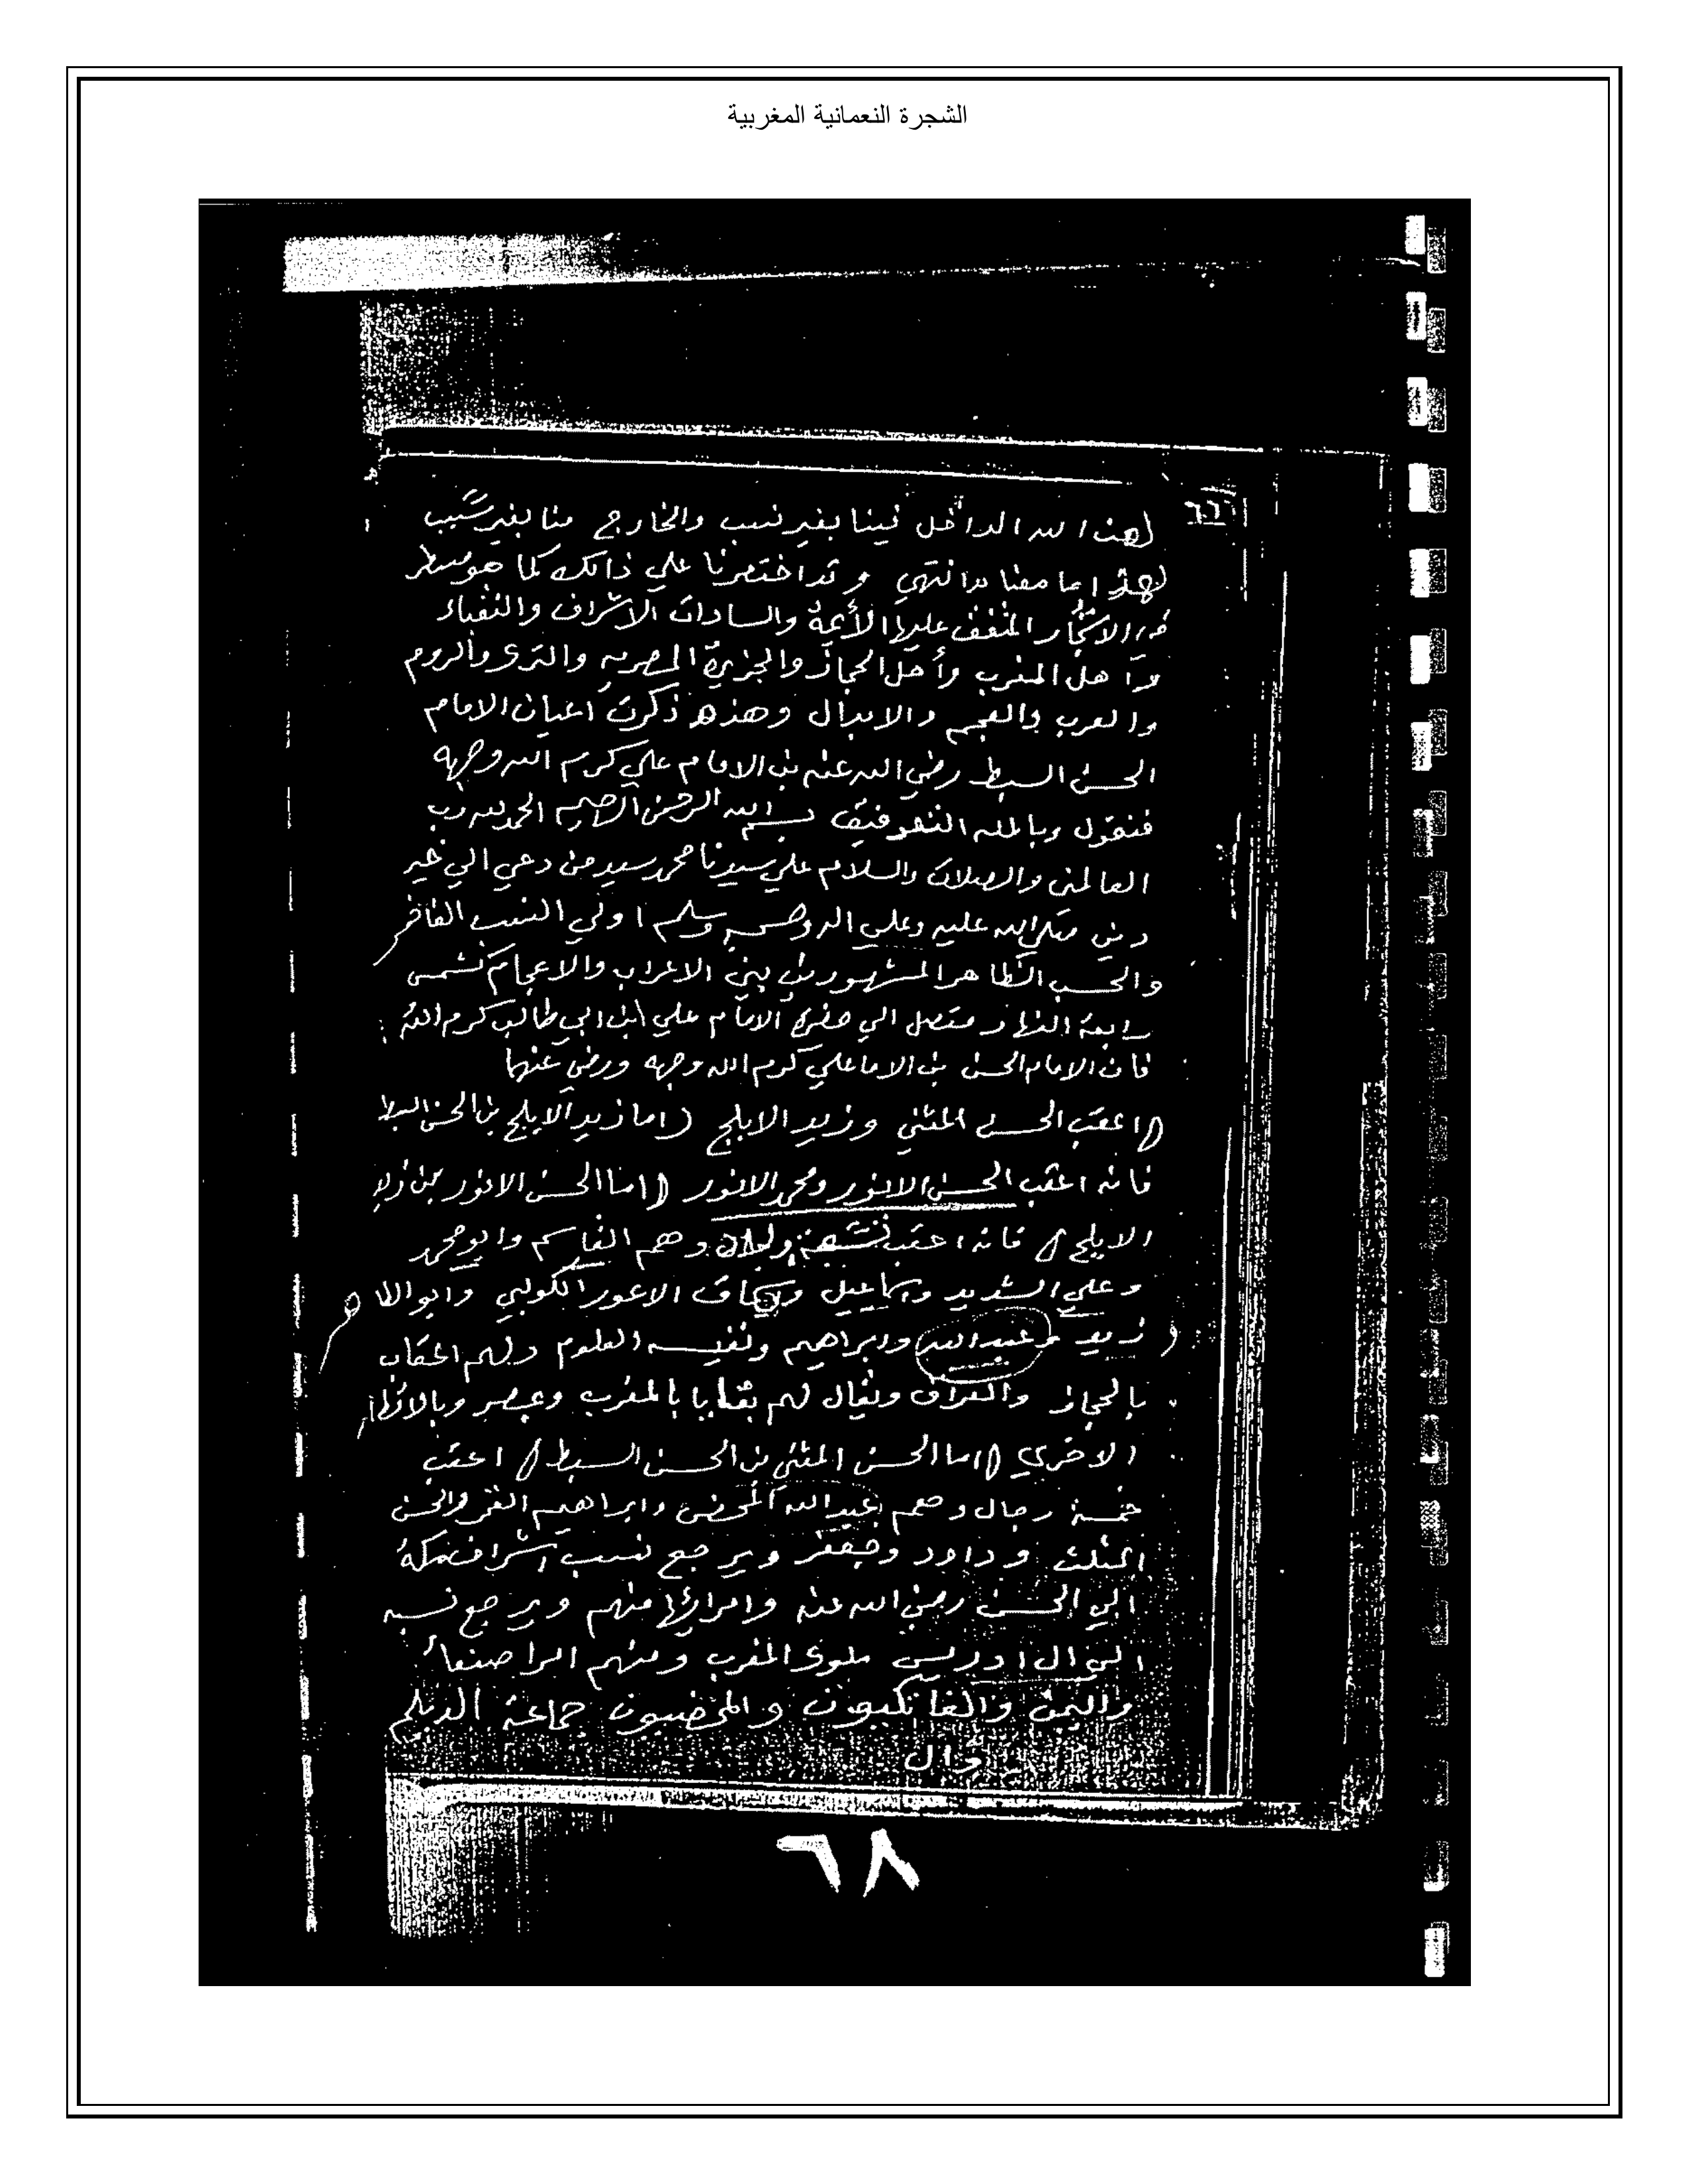 الشجرة النعمانية المغربية
٦٦
لعن الله الداخل فينا بغير نسب والخارج منا بغير سبب
وقد اختصرنا علي ذالك كما هو مسطر
المتفق عليها الأيمة والسادات الاشراف والنقباء
وأهل المغرب وأهل الحجاز والجزيرة المصريه والترك والروم
والعرب والعجم والابدال وهذه ذكرت اعيان الامام
الحسن السبط رضي الله عنه بن الامام علي كرم الله وجهه
فنقول وبالله التوفيق بسم الله الرحمن الرحيم الحمد لله رب
العالمين والصلات والسلام علي سيدنا محمد سيد من دعي الي خير
دين صلى الله عليه وعلي اله وصحبه وسلم اولي النسب الفاخر
والحسب الطاهر المشهورين بين الاعراب والاعجام كشمس
رابعة النهار متصل الي حضرة الامام علي ابن ابي طالب كرم الله
فان الامام الحسن بن الاما علي كرم الله وجهه ورضي عنها
اعقب الحسن المثني وزيد الابلج اما زيد الابلج بن الحسن السبط
فانه اعقب الحسن الانور ومحمد الانور اما الحسن الانور بن زيد
الابلج فانه اعقب تسعة اولاد وهم القاسم وابو محمد
وعلي الشديد واسماعيل واسحاق الاعور الكوكبي وابو الطا
زيد وعبد الله وابراهيم ونفيسه العلوم ولهم اعقاب
بالحجاز والعراق ويقال لهم بقايا بالمغرب ومصر وبالاقطار
الاخري اما الحسن المثني بن الحسن السبط اعقب
خمسة رجال وهم عبد الله المحض وابراهيم الغمر والحسن
المثلث وداود وجعفر ويرجع نسب اشراف مكة
الي الحسن رضي الله عنه وامرائها منهم ويرجع نسبه
الي ال ادريس ملوك المغرب ومنهم امرا صنعاء
واليمن والمحضيون جماعة الديلم
وال
٦٨